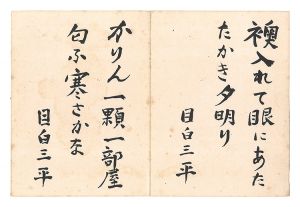 襖入れて眼にあた
たかき夕明り
目白三平
かりん一顆一部屋
匂ふ寒さかな
目白三平